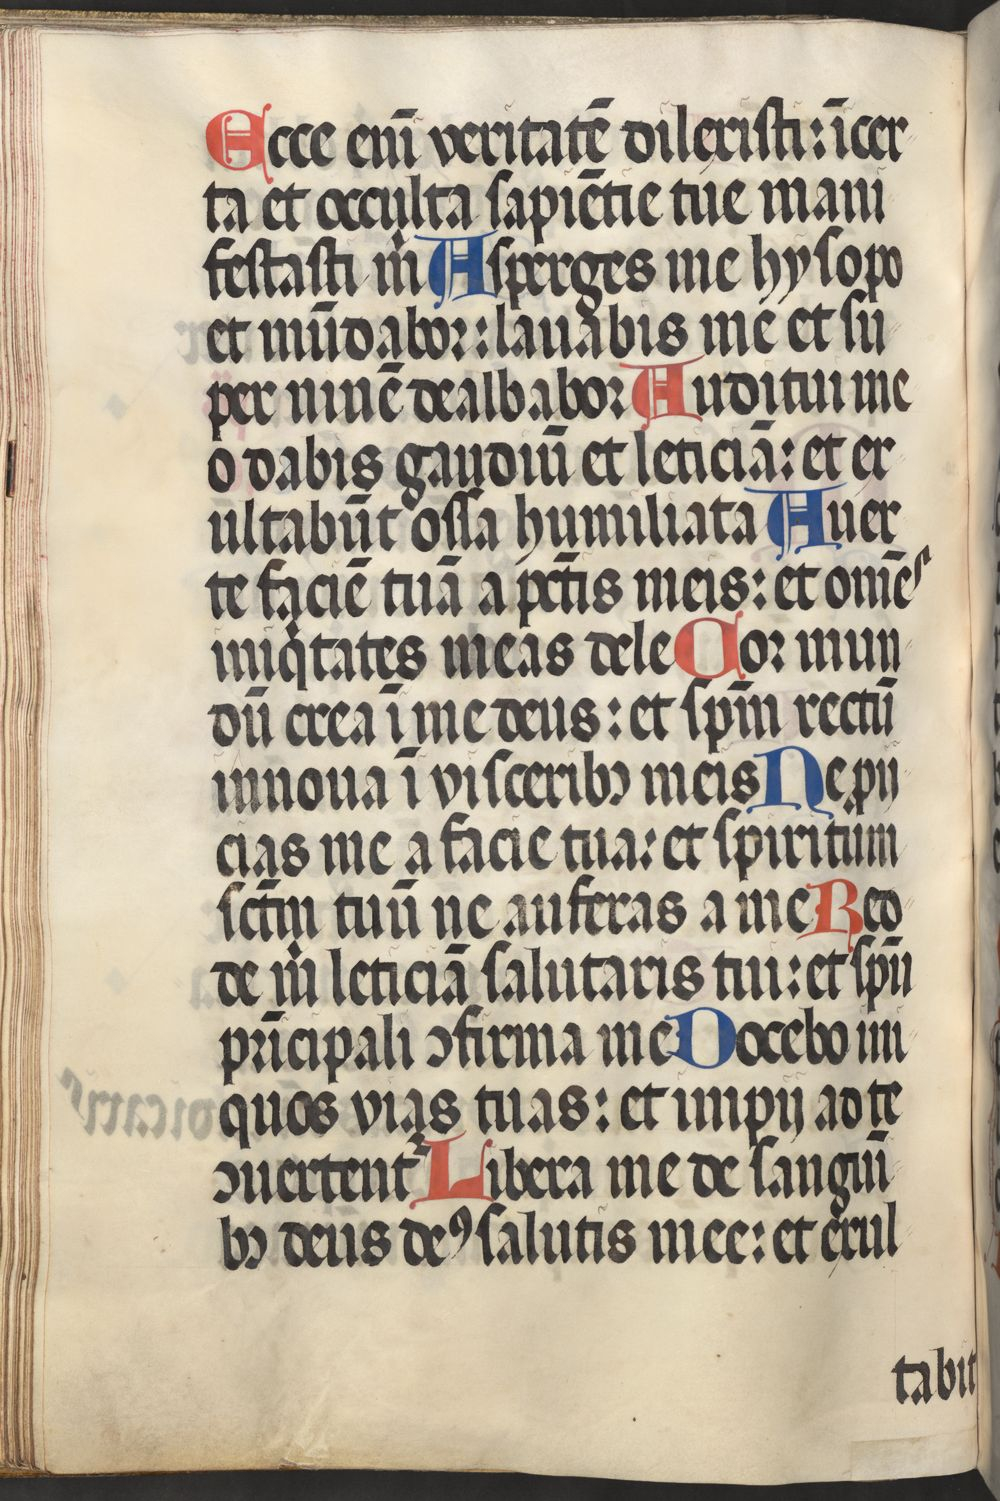 Ecce eni̅ veritate̅ dilexisti: i̅cer
ta et occulta sapie̅tie tue mani
festasti m̍ Asperges me hysopo
et mu̅dabor: lauabis me et su
per niue̅ dealbabor Auditui me
o dabis gaudiu̅ et leticia̅: et ex
ultabu̅t ossa humiliata Auer
te facie̅ tua̅ a pct̅is meis: et om̅es
iniq̍tates meas dele Cor mun
du̅ crea i̅ me deus: et sp̅m rectu̅
innoua i̅ visceribꝫ meis Ne ꝓij
cias me a facie tua: et spiritum
sct̅m tuu̅ ne auferas a me Red
de m̍ leticia̅ salutaris tui: et sp̅u
pri̅cipali ↄfirma me Docebo ini
quos vias tuas: et impij ad te
ↄuertent᷑ Libera me de sangui̅
bꝫ deus de⁹ salutis mee: et exul
tabit